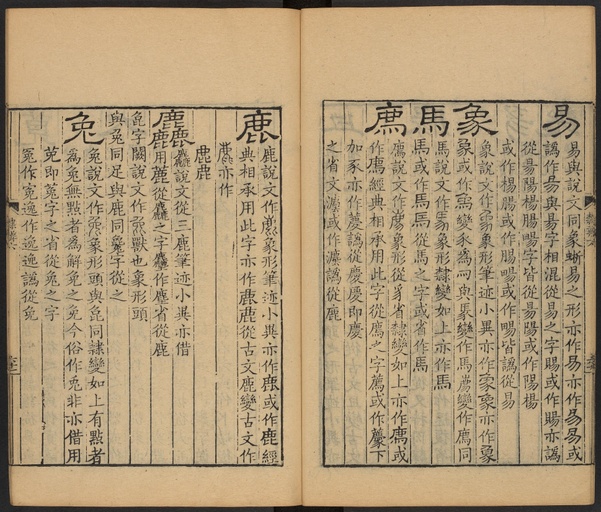 易
易與說文同象蜥易之形亦作易亦作易易或
譌作易與昜字相混從易之字賜或作賜亦譌
從昜陽楊腸暘字皆從昜陽或作陽楊
或作楊腸或作腸暘或作暘皆譌從易
象
象說文作象象形筆迹小異亦作象象亦作象
象或作馬變豕為與作馬變作馬同
馬
馬說文作象形隸變如上亦作馬
馬或作馬馬從馬之字或省作馬
廌
廌說文作廌象形從豸省隸變如上亦作廌或
作廌經典相承用此字從廌之字薦或作下
加豕亦作譌從慶慶即慶
之省文灋或作譌從鹿
鹿
鹿說文作象形筆迹小異亦作鹿或作鹿經
典相承用此字亦作鹿鹿從古文鹿變古文作
亦作
鹿鹿
麤
麤說文從三鹿筆迹小異亦借
用麤從麤之字作省從鹿
㲋字闕說文作獸也象形頭
與兔同足與鹿同㲋字從之
兔
兔說文作象形頭與㲋同隸變如上有點者
為兔無點者為解免之免今俗作兎非亦借用
免即冤字之省從兔之字
冤作寃逸作逸逸譌從免